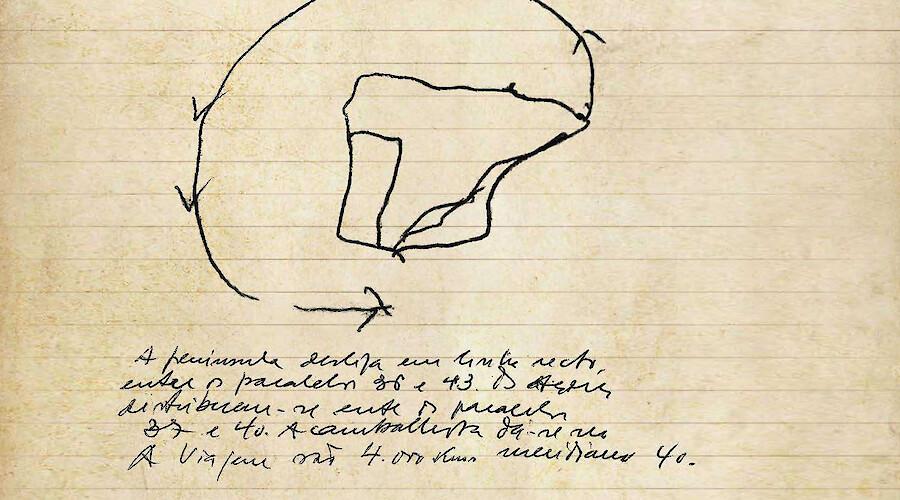 A península desliza em linha recta,
entre os paralelos 36 e 43. Os Açores
distribuem-se entre os paralelos
37 e 40. A cambalhota dá-se no
A viagem são 4.000 kms meridiano 40.